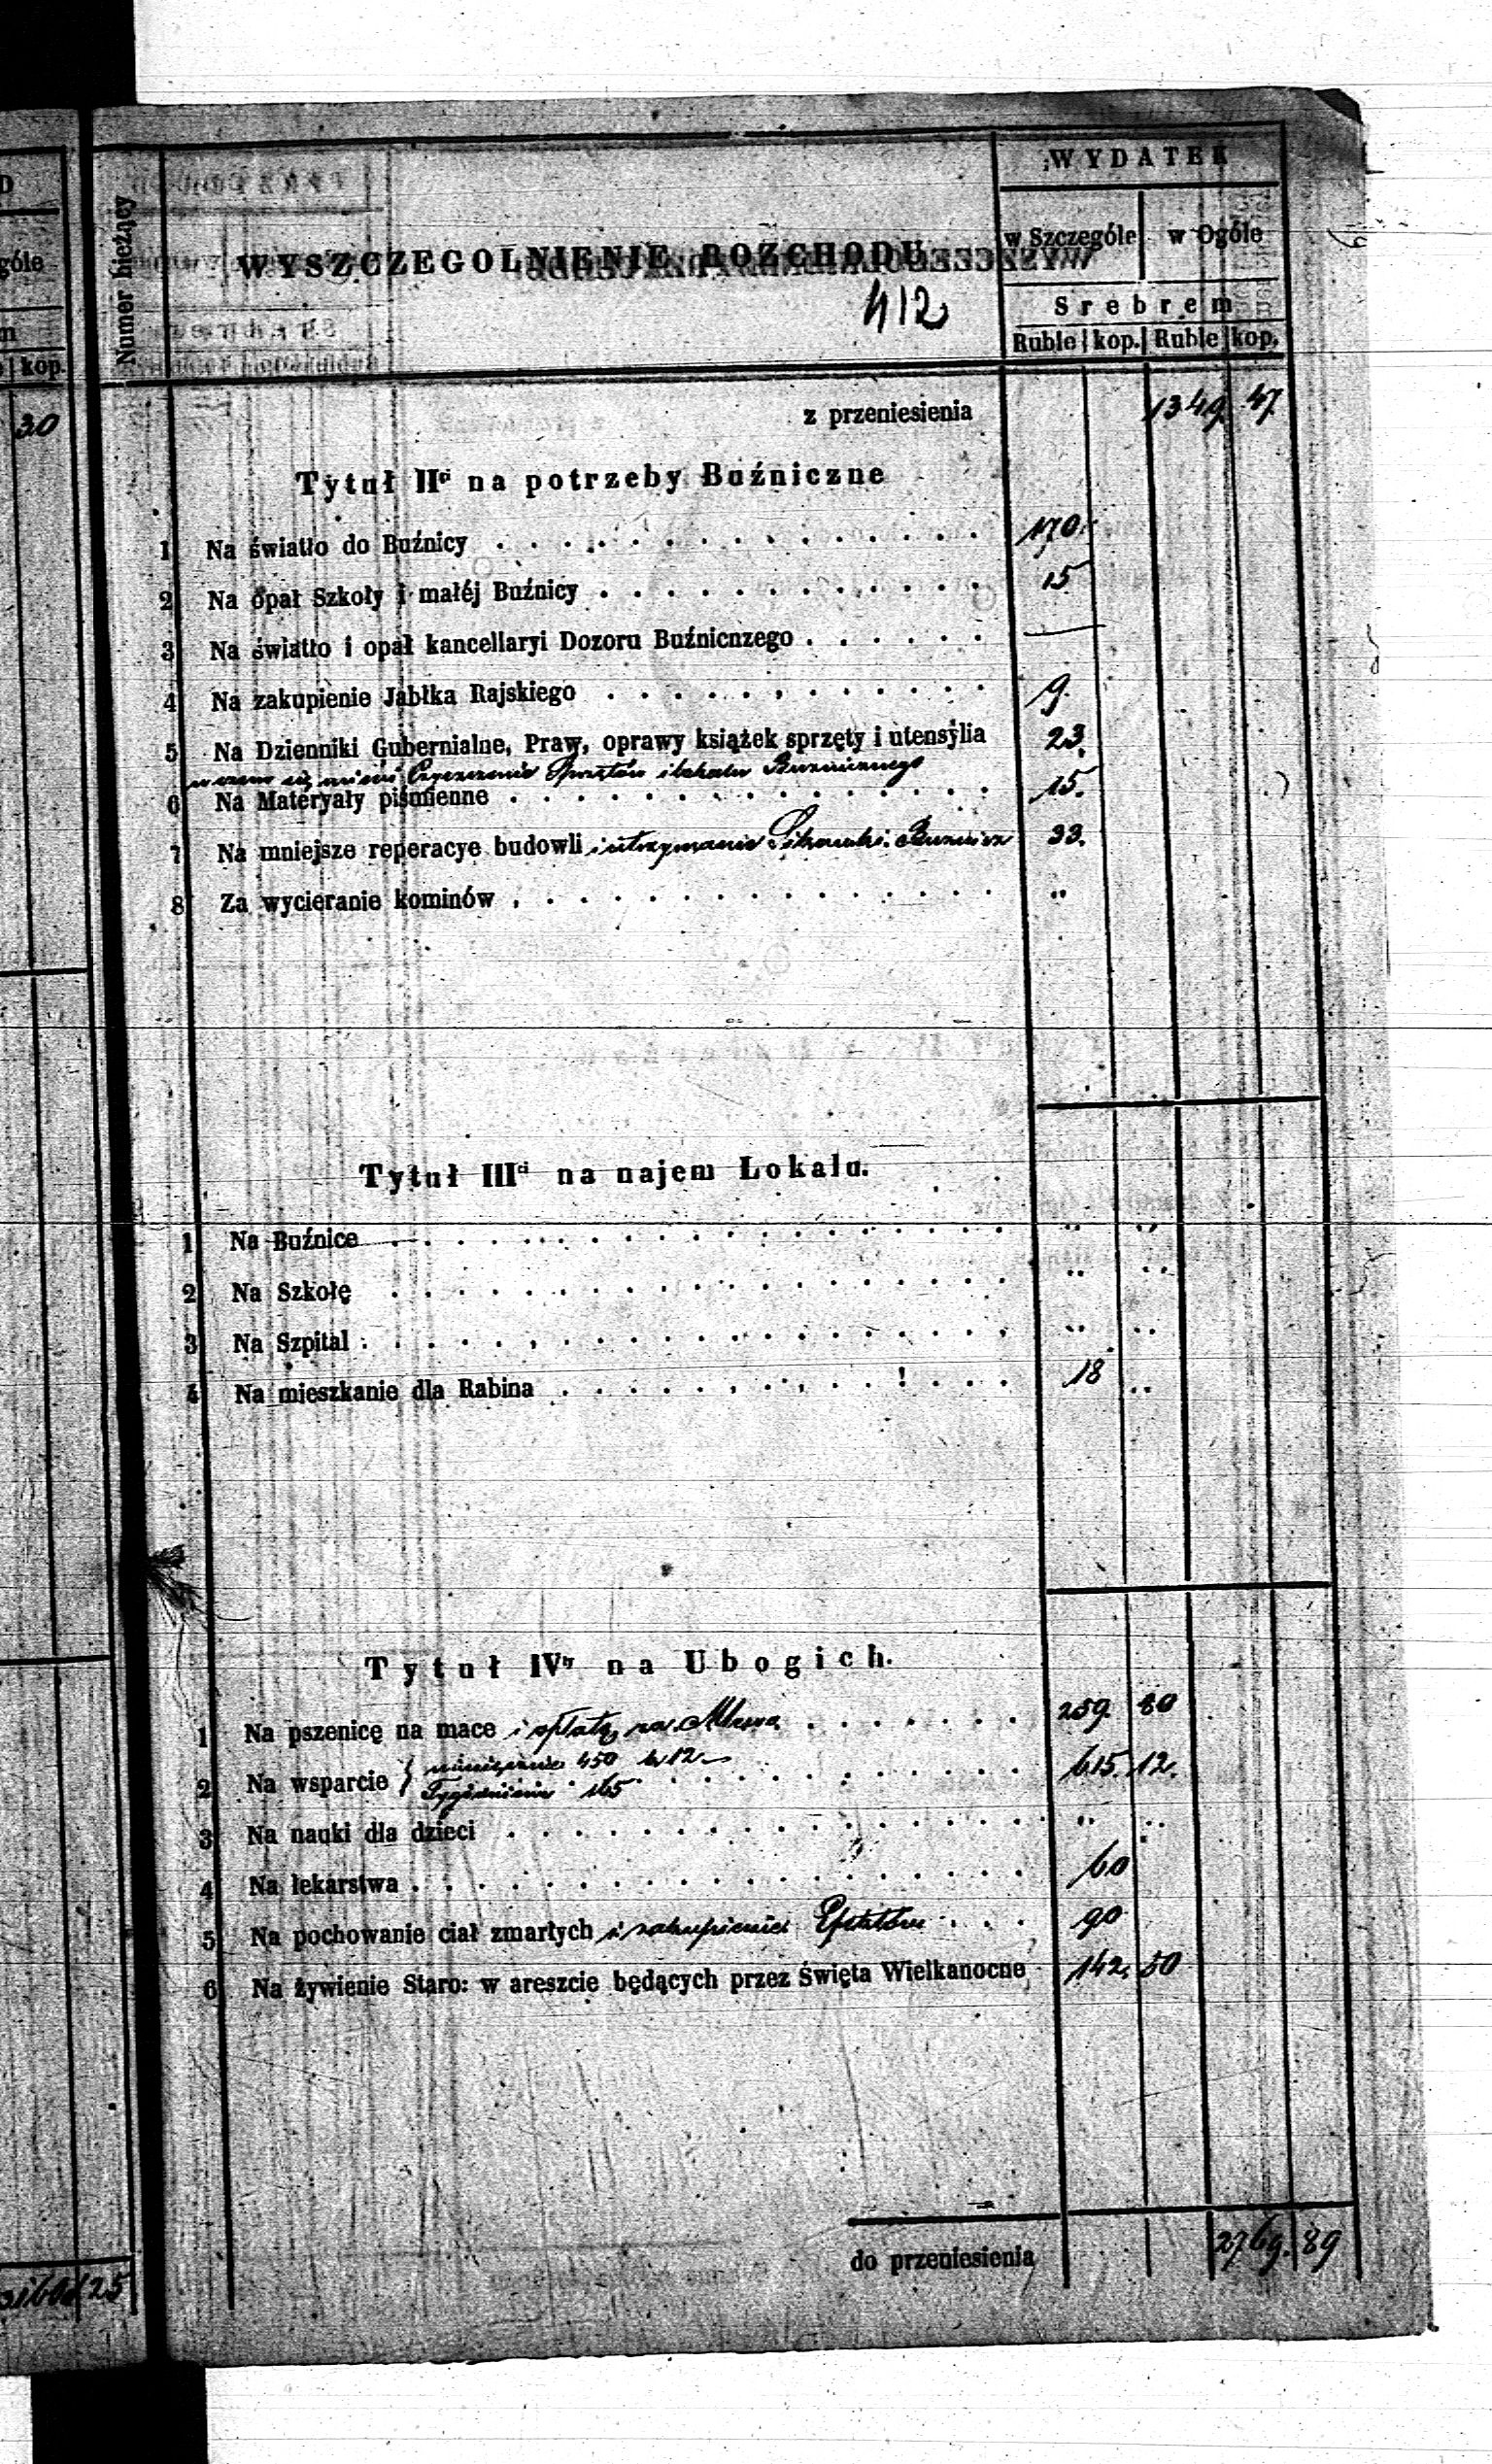 WYDATEK
Numer bieżący
WYSZCZEGOLNIENIE ROZCHODU
w Szczególe w Ogóle
412
Srebrem
Ruble kop. Ruble kop.
góle
kop.
30
z przeniesienia 1349 47
Tytuł IIgi na potrzeby Buźniczne
1 Na światło do Buźnicy 170.
2 Na opał Szkoły i małéj Buźnicy 15
3 Na światło i opał kancellaryi Dozoru Buźnicnzego —
4 Na zakupienie Jabłka Rajskiego 9.
5 Na Dzienniki Gubernialne, Praw, oprawy książek sprzęty i utensylia 23.
w czem się mieści Czyszczenie Sprzętów i lokalu Buznicznego
6 Na Materyały piśmienne 15.
7 Na mniejsze reperacye budowli i utrzymanie 33.
8 Za wycieranie kominów "
Tytuł IIIci na najem Lokalu.
1 Na Buźnice " "
2 Na Szkołę " "
3 Na Szpital " "
4 Na mieszkanie dla Rabina 18 "
Tytuł IVty na Ubogich.
1 Na pszenicę na mace i opłatę za Mlewa 259. 80
miesięcznie 450 k 12
2 Na wsparcie { 615. 12.
Tygodniowo 165
3 Na nauki dla dzieci " "
4 Na lekarstwa 60
5 Na pochowanie ciał zmarłych i zakupienie 90
6 Na żywienie Staro: w areszcie będących przez Święta Wielkanocne 142. 50
do przeniesienia 2769. 89
25